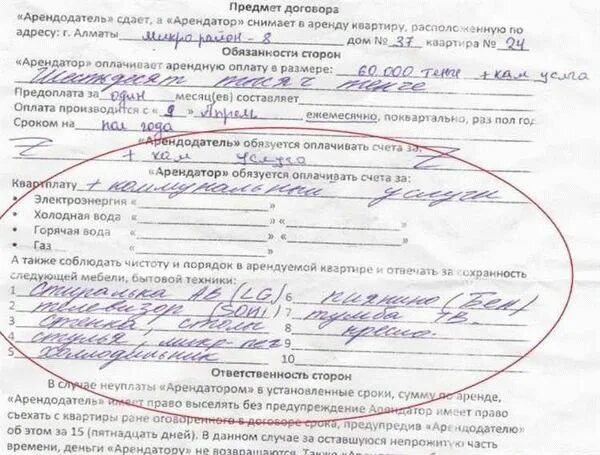 Предмет договора
«Арендодатель» сдает, а «Арендатор» снимает в аренду квартиру, расположенную по
адресу: г. Алматы микрорайон-8 дом № 37 квартира № 24
Обязанности сторон
«Арендатор» оплачивает арендную оплату в размере: 60.000 тенге + кам услга
Шестьдесят тысяч тенге
Предоплата за один месяц(ев) составляет
Оплата производится с « 9 » Апрель ежемесячно, поквартально, раз пол год
Сроком на пол года
«Арендодатель» обязуется оплачивать счета за:
Z + кам услуга Z
«Арендатор» обязуется оплачивать счета за:
Квартплату + коммунальный услуги
• Электроэнергия «
• Холодная вода «
• Горячая вода «
• Газ
А также соблюдать чистоту и порядок в арендуемой квартире и отвечать за сохранность
следующей мебели, бытовой техники:
1 стиралька АВ (LG) 6 пиянино (Бел)
2 телевизор (SONI) 7 тумба ТВ
3 стенка, столы 8 кресло
4 стулья, микр-печ 9
5 холодильник 10
Ответственность сторон
В случае неуплаты «Арендатором» в установленные сроки, сумму по аренде,
«Арендодатель» имеет право выселять без предупреждение Арендатор имеет право
съехать с квартиры ране оговоренного в договоре срока, предупредив «Арендодателю»
об этом за 15 (пятнадцать дней). В данном случае за оставшуюся непрожитую часть
времени, деньги «Арендатору» не возвращаются. Также